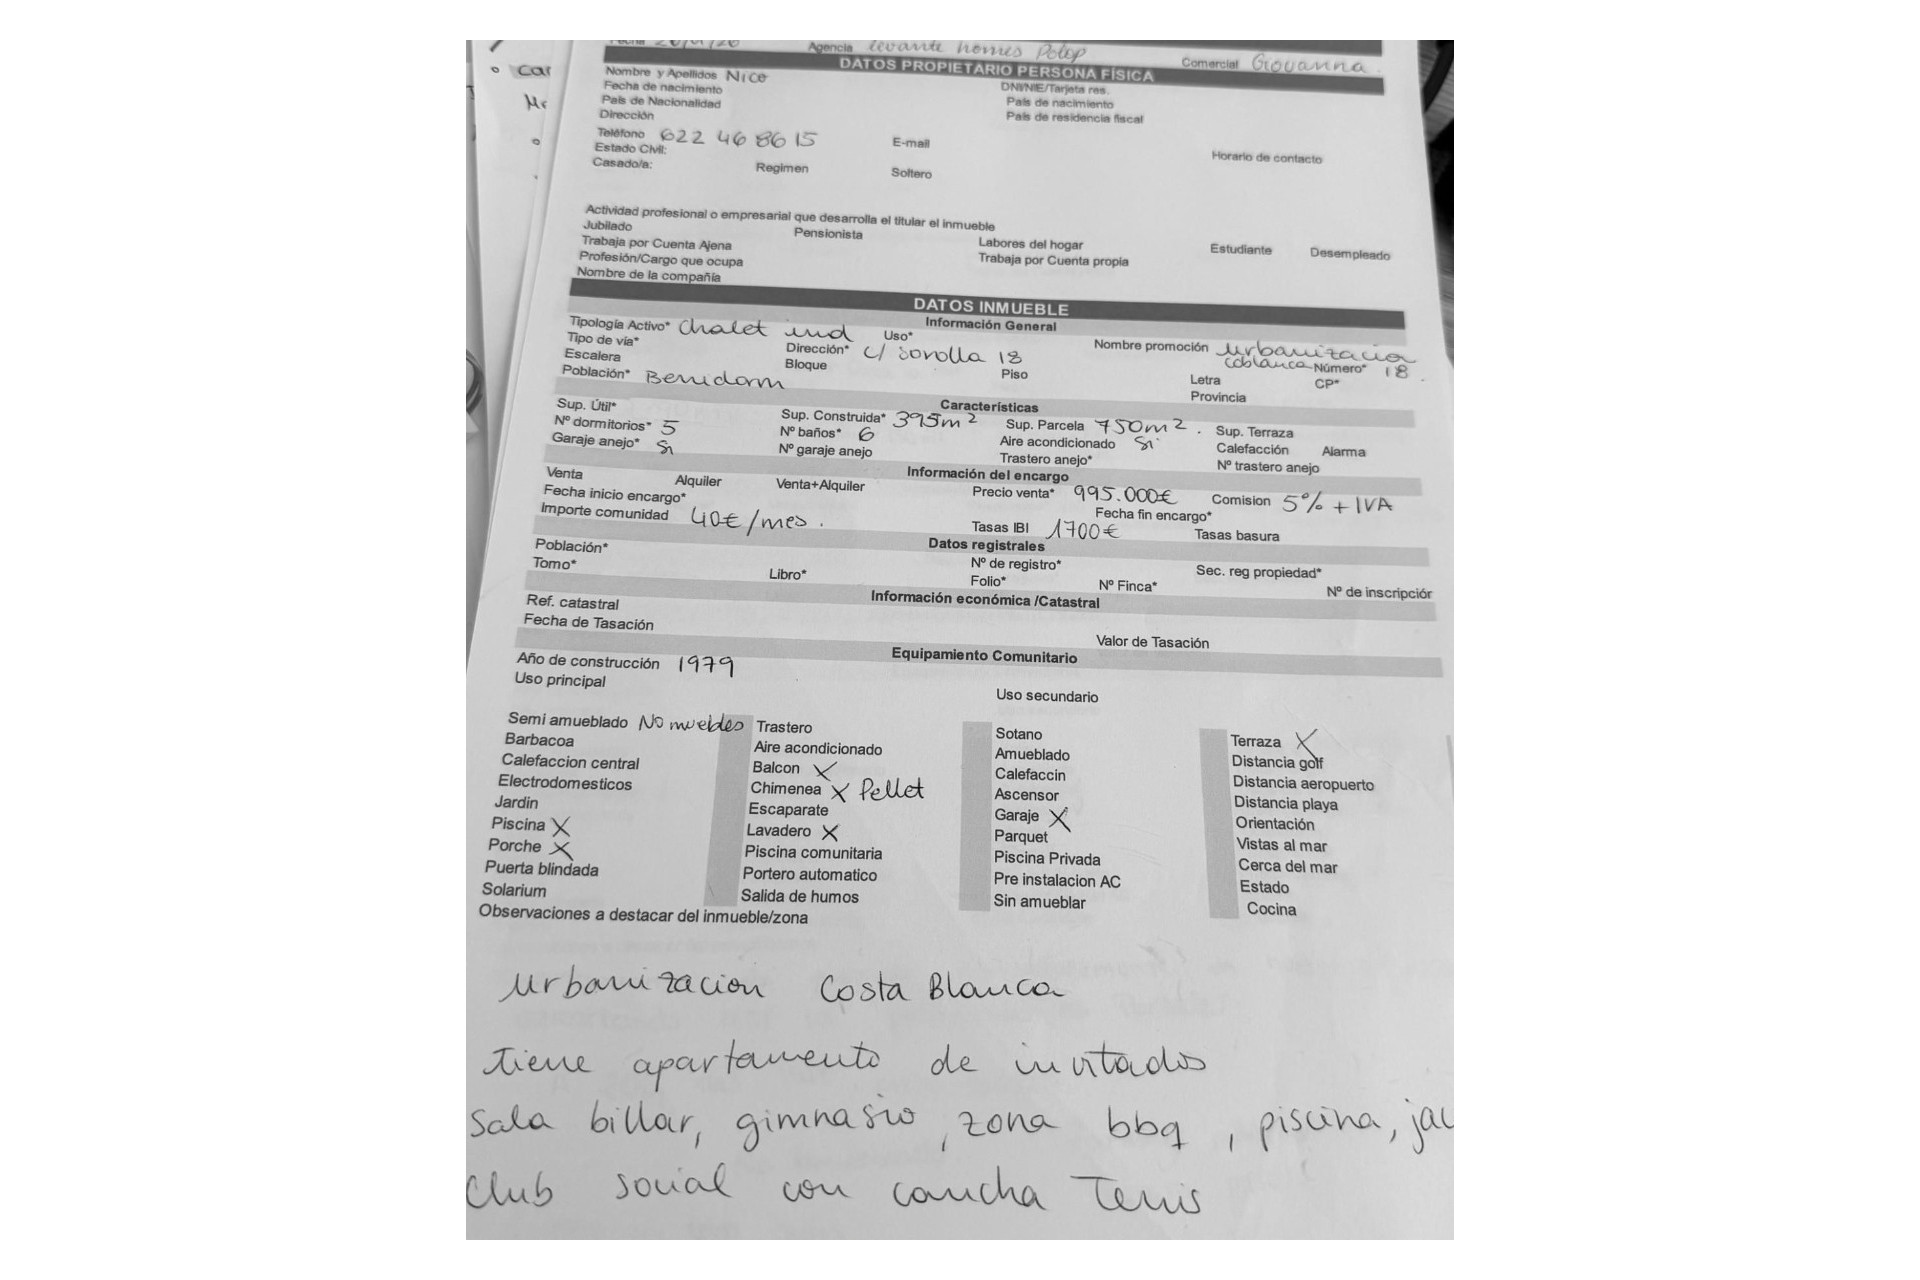 Fecha 20/11/20 Agencia Levante homes Polop Comercial Giovanna.
DATOS PROPIETARIO PERSONA FÍSICA
Nombre y Apellidos Nico DNI/NIE/Tarjeta res.
Fecha de nacimiento País de nacimiento
País de Nacionalidad País de residencia fiscal
Dirección
Teléfono 622 46 86 15 E-mail Horario de contacto
Estado Civil:
Casado/a: Regimen Soltero
Actividad profesional o empresarial que desarrolla el titular el inmueble
Jubilado Pensionista Labores del hogar Estudiante Desempleado
Trabaja por Cuenta Ajena Trabaja por Cuenta propia
Profesión/Cargo que ocupa
Nombre de la compañía
DATOS INMUEBLE
Información General
Tipología Activo* Chalet ind Uso* Nombre promoción Urbanizacion
Tipo de vía* Dirección* c/ Sorolla 18 coblanca Número* 18.
Escalera Bloque Piso Letra CP*
Población* Benidorm Provincia
Características
Sup. Útil* Sup. Construida* 395m² Sup. Parcela 750m². Sup. Terraza
Nº dormitorios* 5 Nº baños* 6 Aire acondicionado Si Calefacción Alarma
Garaje anejo* Si Nº garaje anejo Trastero anejo* Nº trastero anejo
Información del encargo
Venta Alquiler Venta+Alquiler Precio venta* 995.000€ Comision 5% + IVA
Fecha inicio encargo* Fecha fin encargo*
Importe comunidad 40€/mes. Tasas IBI 1700€ Tasas basura
Datos registrales
Población* Nº de registro* Sec. reg propiedad*
Tomo* Libro* Folio* Nº Finca* Nº de inscripción
Información económica /Catastral
Ref. catastral
Fecha de Tasación Valor de Tasación
Equipamiento Comunitario
Año de construcción 1979
Uso principal Uso secundario
Semi amueblado No muebles Trastero Sotano Terraza X
Barbacoa Aire acondicionado Amueblado Distancia golf
Calefaccion central Balcon X Calefaccin Distancia aeropuerto
Electrodomesticos Chimenea X Pellet Ascensor Distancia playa
Jardin Escaparate Garaje X Orientación
Piscina X Lavadero X Parquet Vistas al mar
Porche X Piscina comunitaria Piscina Privada Cerca del mar
Puerta blindada Portero automatico Pre instalacion AC Estado
Solarium Salida de humos Sin amueblar Cocina
Observaciones a destacar del inmueble/zona
Urbanizacion Costa Blanca
Tiene apartamento de invitados
Sala billar, gimnasio, zona bbq, piscina, jac
Club social con cancha Tenis